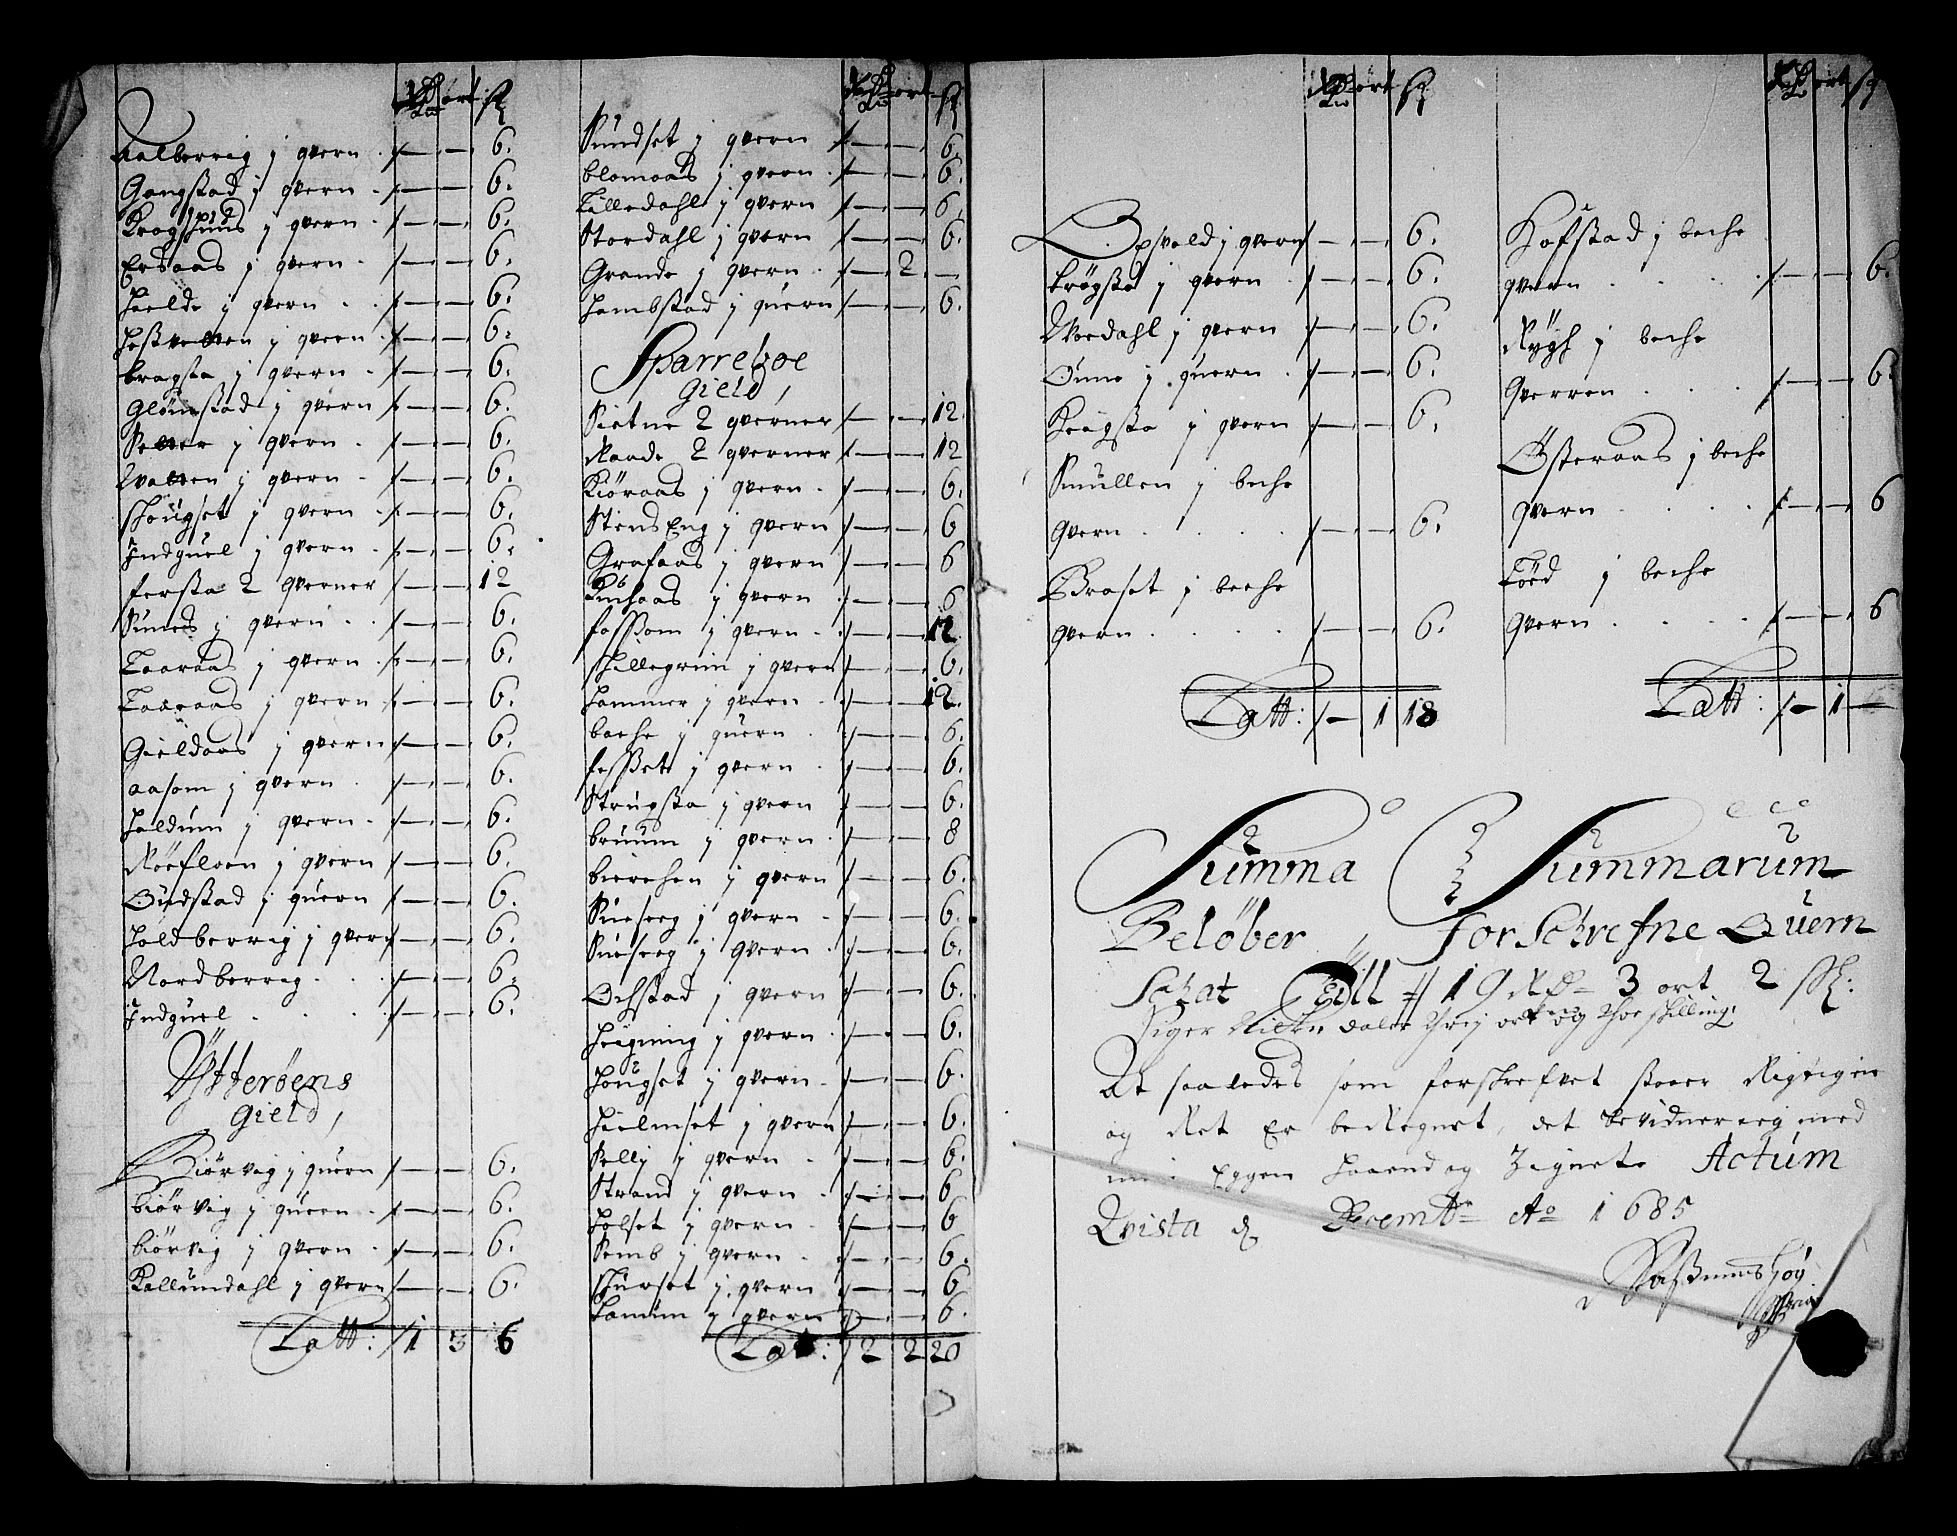 Rdr ort sk
Aalberrig j qvern 6.
Gangstad j qvern 6.
Krogshuus j qvern 6.
Ersaas j qvern 6.
Hielde j qvern 6.
j qvern 6.
bragsta j qvern 6.
Glömstad j qvern 6.
Setter j qvern 6.
Qvatten j qvern 6.
skougset j qvern 6.
Indguel j qvern 6.
fersta 2 qverner 12
Sunes j qvern 6.
Taaraas j qvern 6.
Taaraas j qvern 6.
Gieldaas j qvern 6.
aasom j qvern 6.
Haldum j qvern 6.
Röefloen j qvern 6.
Oudstad j quern 6.
Holdberrig j qvern 6.
Nordberrig 6.
Indguel 6.
Ÿtterøens
Gield,
Kiörvig j quern 6.
biörvig j quern 6.
biörvig j qvern 6.
Kallumdahl j qvern 6.
Latt: 1 3 6
Rdr ort sk
Sundset j qvern 6.
blomaas j qvern 6.
Lilledahl j qvern 6.
Stordahl j qvern 6.
Grande j qvern 2
Hambstad j quern 6.
Sparreboe
Gield,
Sietne 2 qverner 12.
Raade 2 qverner 12
Kiöraas j qvern 6.
Stens Eng j qvern 6
Grafaas j qvern 6
j qvern 6
fossom j qvern 12.
Hillegrim j qvern 6.
Hammer j qvern 12.
bache j quern 6.
fosset j qvern 6.
Strugsta j qvern 6.
bruum j qvern 8
bierchen j qvern 6.
Sneeeg j qvern 6.
Sneeeg j qvern 6.
Ochstad j qvern 6.
Heigning j qvern 6.
Hougset j qvern 6.
Hielmset j qvern 6.
Selly j qvern 6.
Strand j qvern 6
Holset j qvern 6
Semb j qvern 6.
skurset j qvern 6
Lanum j qvern 6.
Lat: 2 2 20
Rdr ort sk
Opvold j qvern 6.
brögsta j qvern 6.
Woedahl j qvern 6.
Oune j quern 6.
Kragsta j qvern 6.
Smullen j beche
qvern 6.
Braset j beche
qvern 6.
Latt: 1 18
Rdr ort sk
Hofstad j beche
qvern 6.
Rygh j beche
qverren 6.
Österaas j beche
qvern 6
Töed j beche
qvern 6
Latt: 1
Summa Summarum
Beløber forschrefne Quern
Schat Till 19 Rdr 3 ort 2 sk:
Siger Nitten daler Threj ort og Thoe skilling
At saaledes som forschrefvet staaer Rigtig
og Ret Er beregnet, det bevidner ieg med
min Eygen Haand og Zignete Actum
Qvista d Decembr Ao 1685
Rasmus Höy